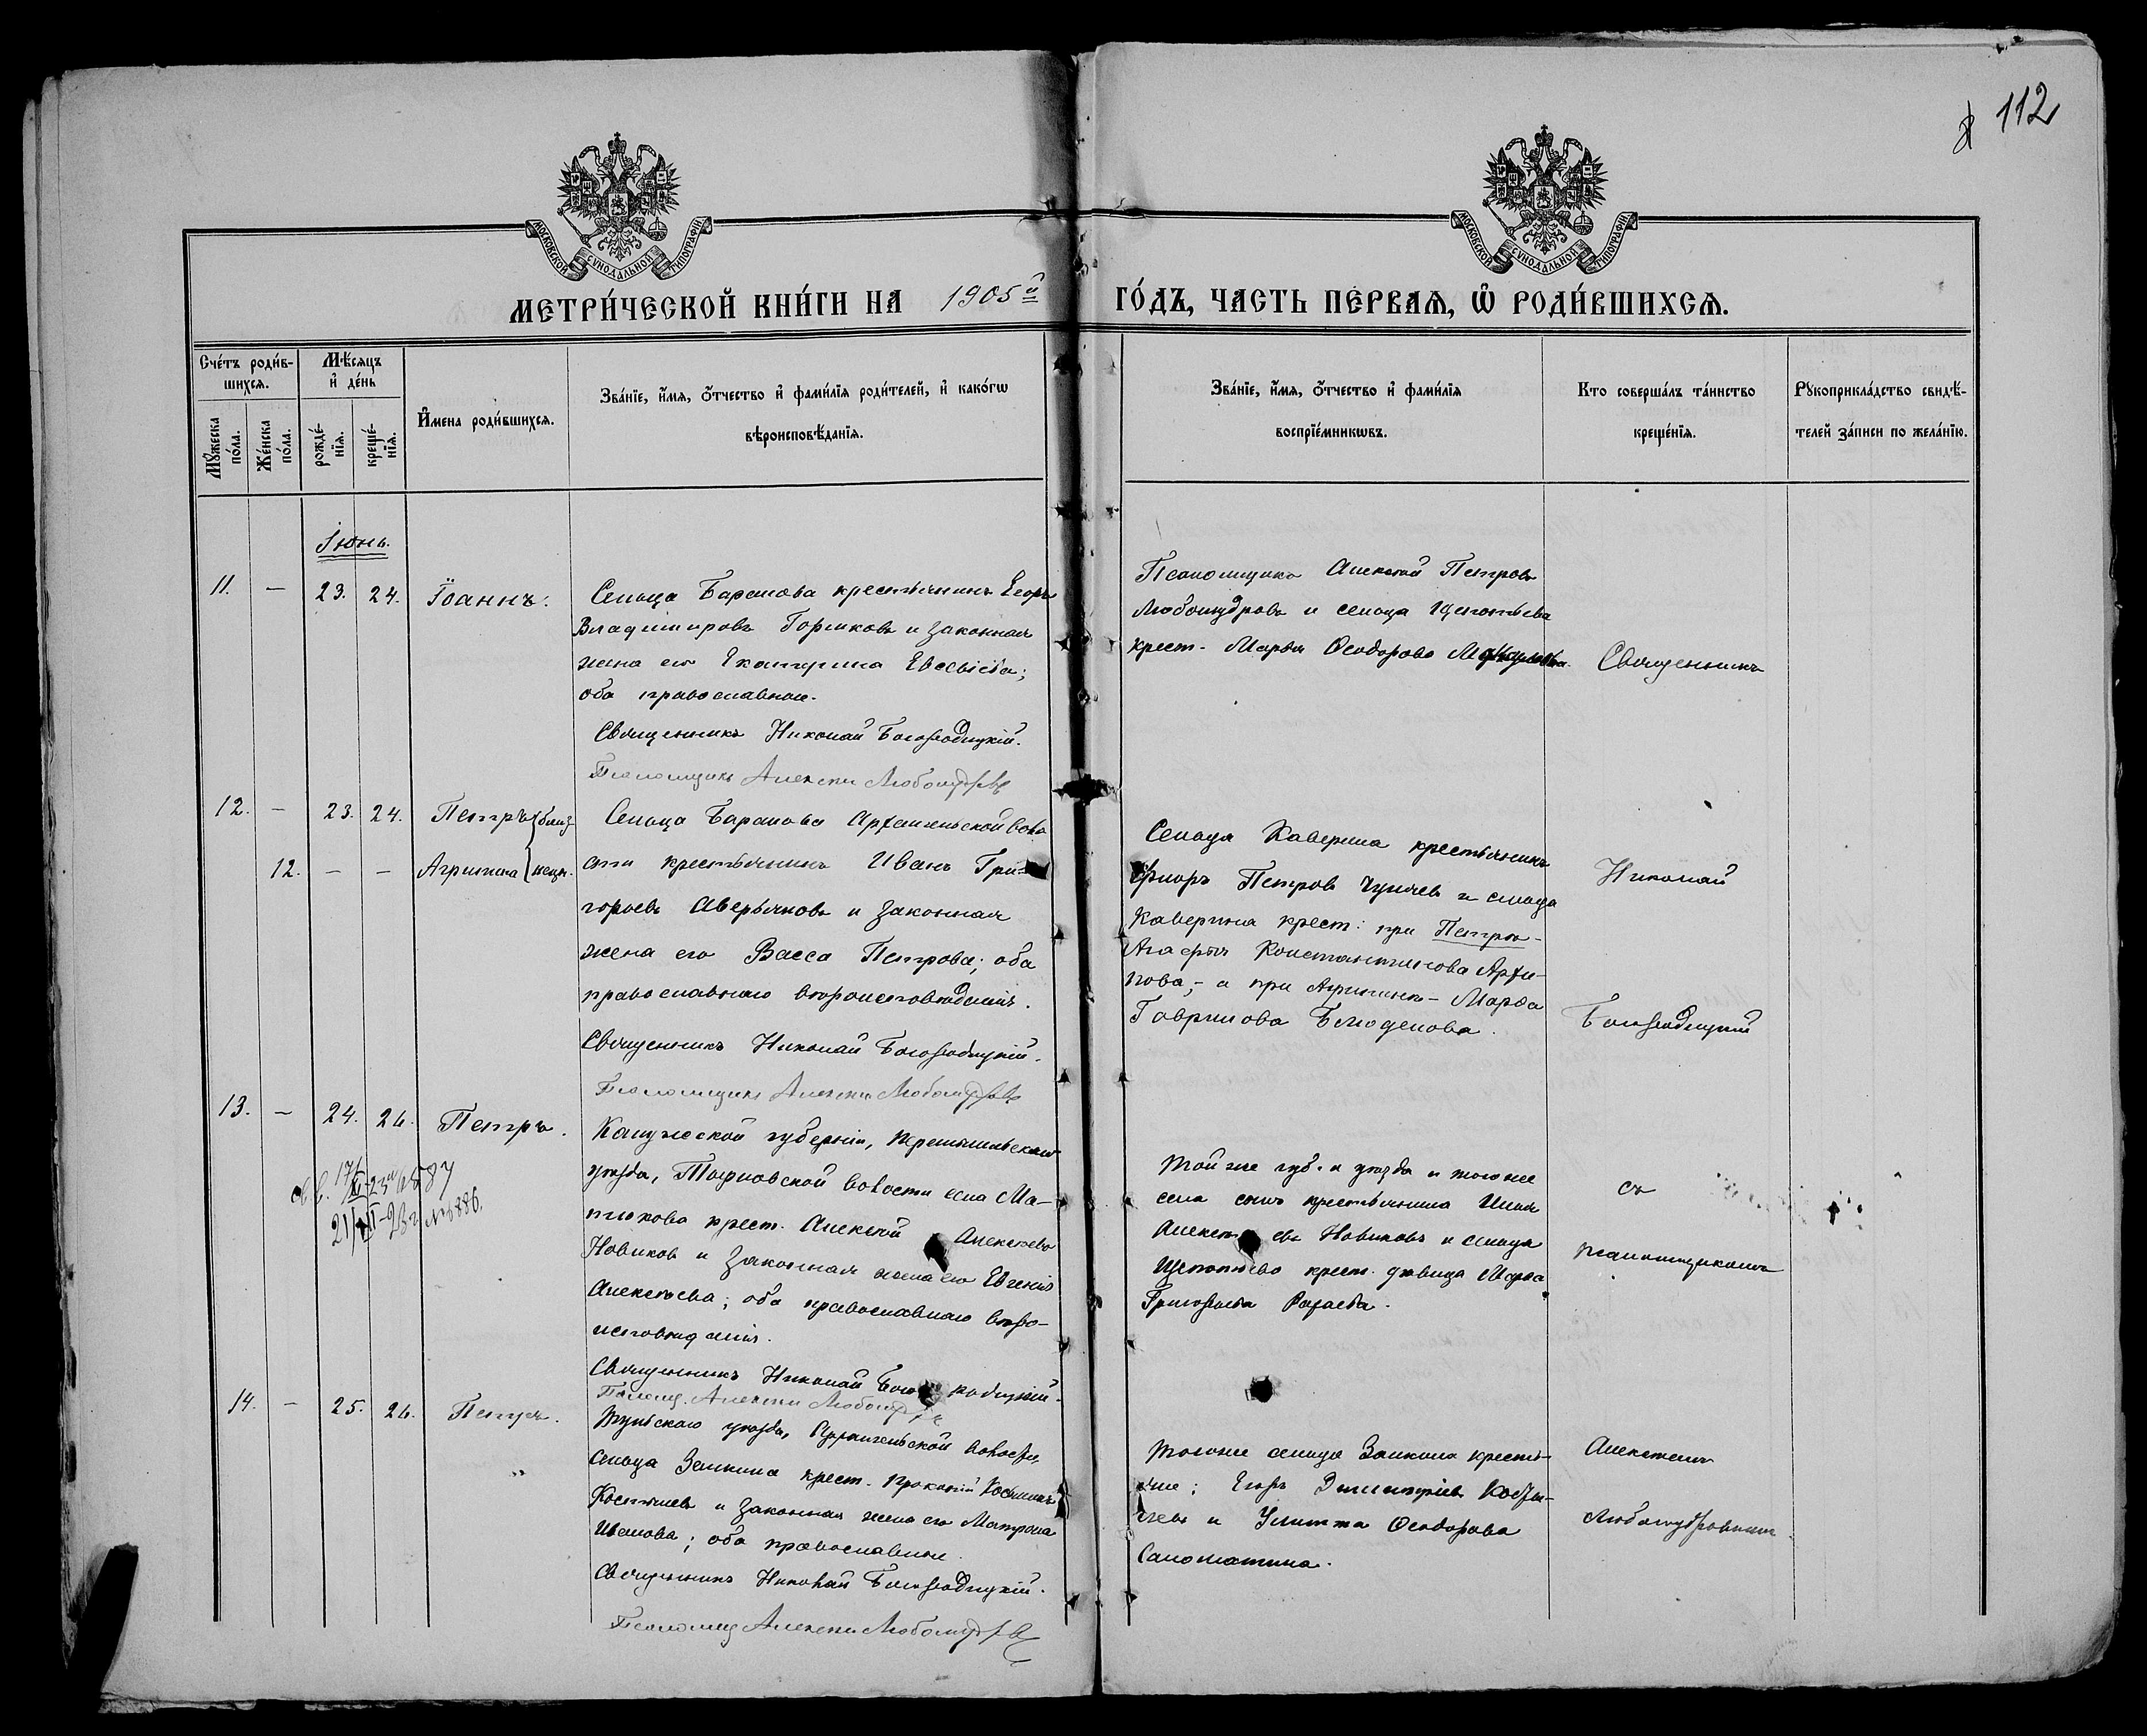 112
МОСКОВСКОЙ СУНОДАЛЬНОЙ ТИПОГРАФІИ
МОСКОВСКОЙ СУНОДАЛЬНОЙ ТИПОГРАФІИ
МЕТРИ́ЧЕСКОЙ КНИ́ГИ НА 1905й ГО́ДЪ, ЧАСТЬ ПЕ́РВАЯ, Ѡ РОДИ́ВШИХСЯ.
Сче́тъ роди́в-
шихся.
Мѣ́сяцъ
и де́нь
Му́жеска
по́ла.
Же́нска
по́ла.
рожде́-
нія.
креще́-
нія.
И́мена роди́вшихся.
Зва́ніе, и́мя, о́тчество и фами́лія роди́телей, и како́гѡ
вѣроисповѣ́данія.
Зва́ніе, и́мя, о́тчество и фами́лія
воспріе́мникѡвъ.
Кто соверша́лъ та́инство
креще́нія.
Рукоприкла́дство свидѣ́-
телей за́писи по жела́нію.
Іюнь.
11. — 23. 24. Іоаннъ.
Сельца Баранова крестьянинъ Егоръ
Владиміровъ Горшковъ и законная
жена его Екатерина Евсевіева;
оба православные.
Священникъ Николай Богородицкій.
Псаломщикъ Алексѣй Любомудровъ
Псаломщикъ Алексѣй Петровъ
Любомудровъ и сельца
крест. Марѳа Ѳеодорова
Священникъ
12. — 23. 24. Петръ близ-
12. — — Агрипина нецы.
Сельца Баранова Архангельской воло
сти крестьянинъ Иванъ Гри-
горьевъ Аверьяновъ и законная
жена его Васса Петрова; оба
православнаго вѣроисповѣданія.
Священникъ Николай Богородицкій.
Псаломщикъ Алексѣй Любомудровъ
Сельца Каверина крестьянинъ
Петровъ и сельца
Каверина крест: при Петрѣ-
Агаѳья Константинова Архи-
пова,- а при Агрипинѣ- Марѳа
Гаврилова
Николай
Богородицкій
13. — 24. 26. Петръ.
Калужской губерніи, Перемышльскаго
уѣзда, волости села Ма-
крест. Алексѣй Алексѣевъ
Новиковъ и законная жена его Евгенія
Алексѣева; оба православнаго вѣро-
исповѣданія.
Священникъ Николай Богородицкій.
Псаломщ. Алексѣй Любомудровъ
Той же губ. и уѣзда и того же
села сынъ крестьянина Илья
Алексѣевъ Новиковъ и сельца
крест. дѣвица Марѳа
Григорьева
съ
псаломщикомъ
14. — 25. 26. Петръ.
Тульскаго уѣзда, Архангельской волости,
сельца Заикина крест. Прокопій
и законная жена его Матрона
Иванова; оба православные.
Священникъ Николай Богородицкій.
Псаломщ Алексѣй Любомудровъ
Того же сельца Заикина кресть-
яне: Егоръ Димитріевъ
и Улитта Ѳеодорова
Саломатина.
Алексѣемъ
Любомудровымъ.